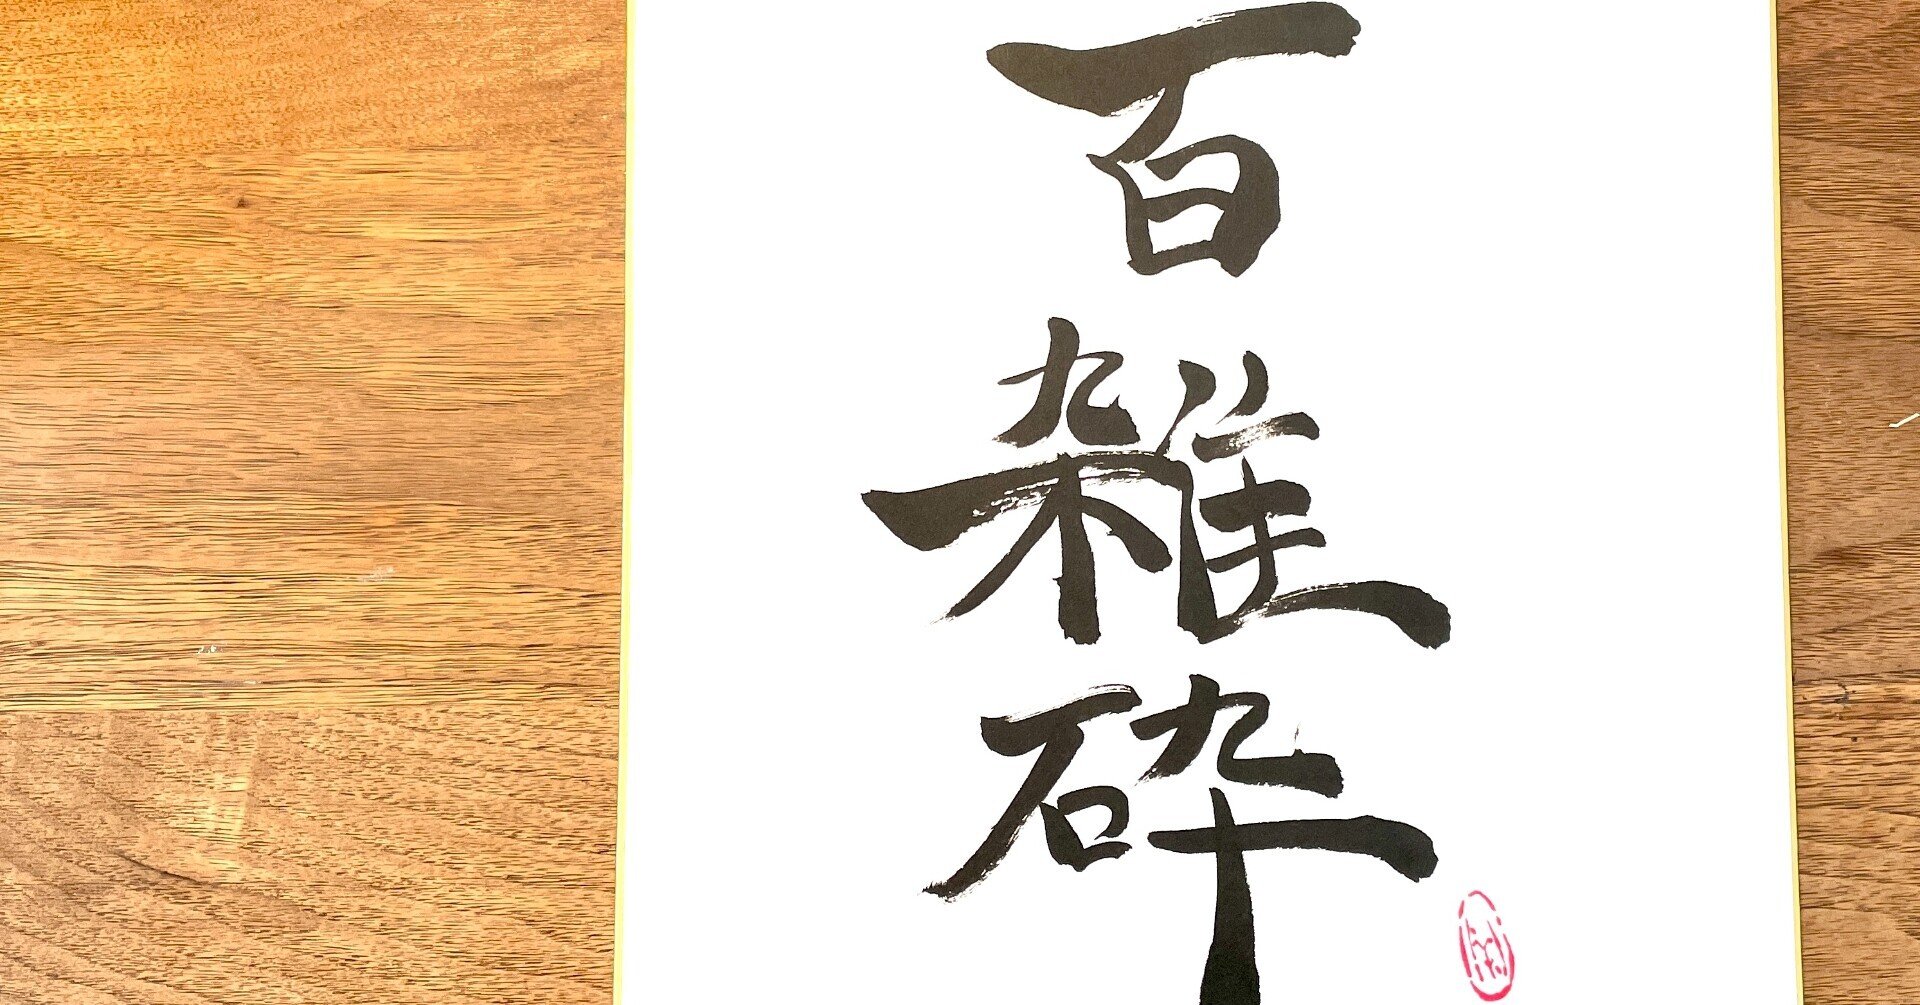 百雑砕